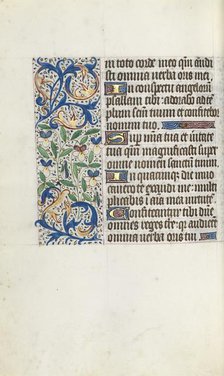 in toto corde meo qm̄ audi
sti omnia verba oris mei
In conspectu angelorū
psallam tibi: adorabo ad te
plum sc̄m tuum et confitebor
nomini tuo
Sup m̄ia tua et veritate
tua qm̄ magnificasti super
omne nomen sanctum tuum
In quacunque die inuo
cauero te exaudi me: mul
tiplicabis in aīa mea
Confiteantur tibi dn̄e
omnes reges terre: q̄ audierūt
omnia verba oris tui